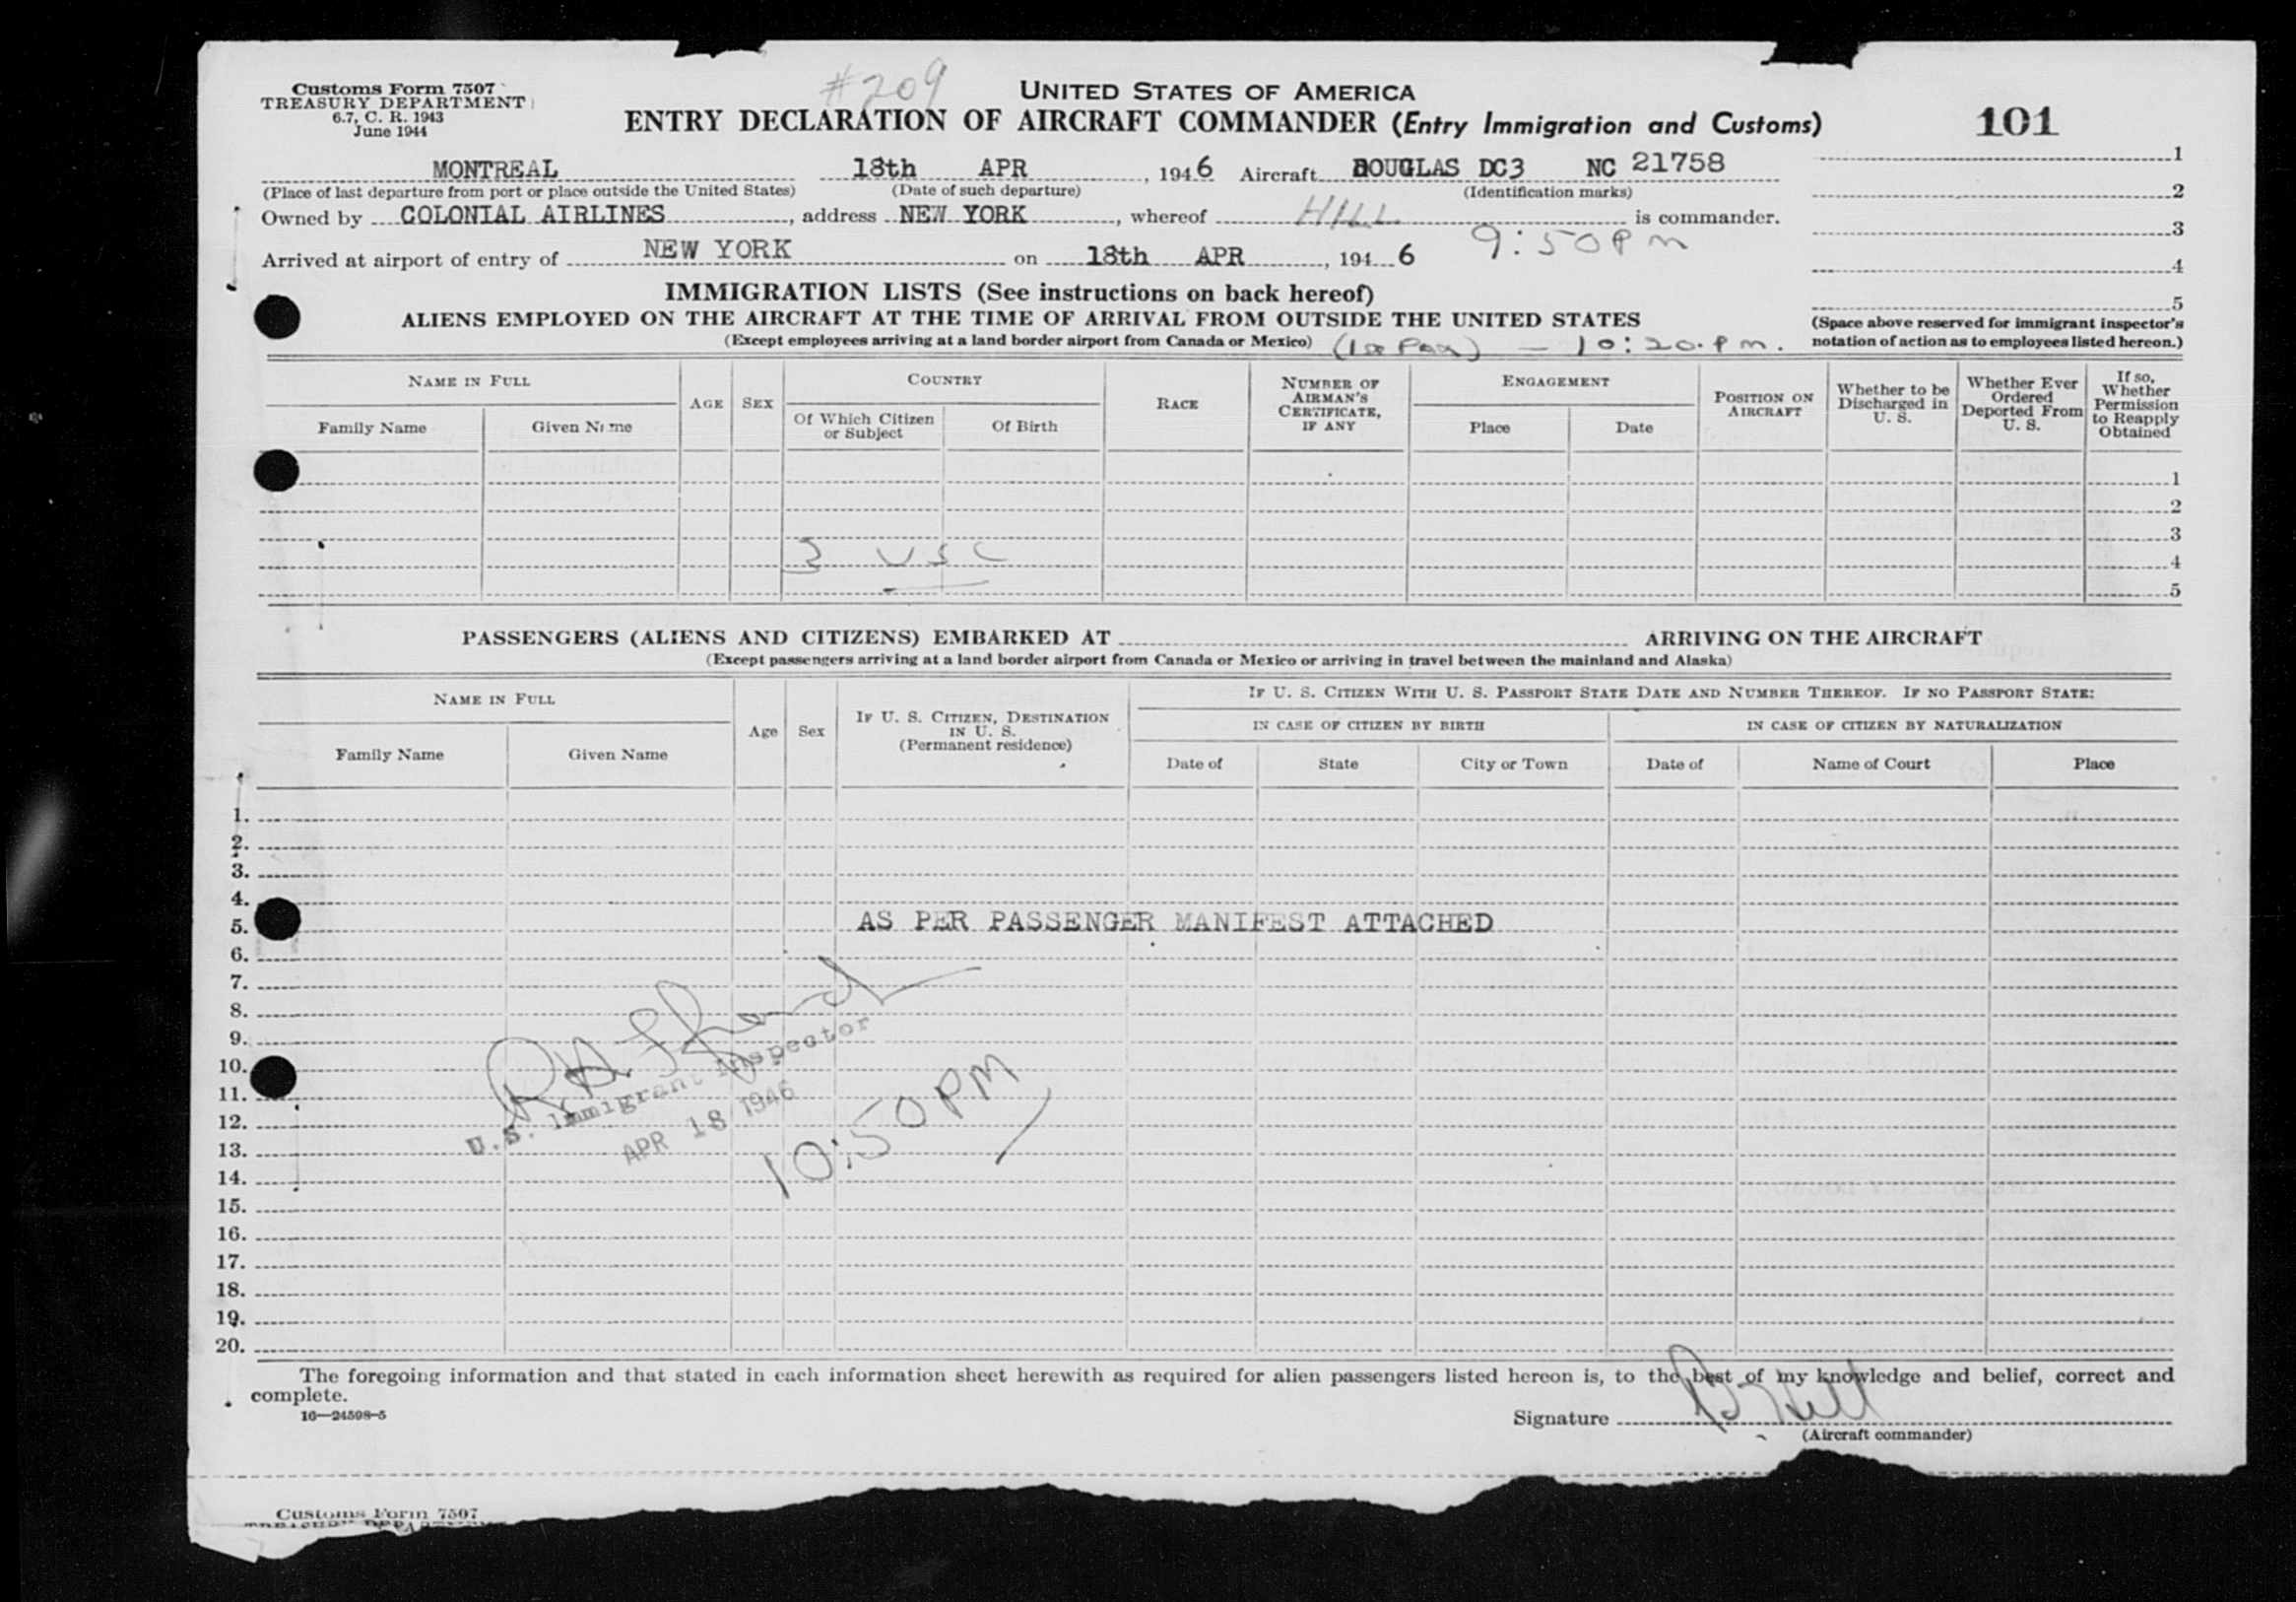 #209
Customs Form 7507
TREASURY DEPARTMENT
6.7, C. R. 1943
June 1944
UNITED STATES OF AMERICA
ENTRY DECLARATION OF AIRCRAFT COMMANDER (Entry Immigration and Customs)
101
MONTREAL 18th APR , 1946 Aircraft DOUGLAS DC3 NC 21758
(Place of last departure from port or place outside the United States) (Date of such departure) (Identification marks)
Owned by COLONIAL AIRLINES, address NEW YORK, whereof HILL is commander.
Arrived at airport of entry of NEW YORK on 18th APR, 1946 9:50 PM
1
2
3
4
5
(Space above reserved for immigrant inspector's
notation of action as to employees listed hereon.)
IMMIGRATION LISTS (See instructions on back hereof)
ALIENS EMPLOYED ON THE AIRCRAFT AT THE TIME OF ARRIVAL FROM OUTSIDE THE UNITED STATES
(Except employees arriving at a land border airport from Canada or Mexico) — 10:20 P.M.
NAME IN FULL
Family Name
Given Name
AGE
SEX
COUNTRY
Of Which Citizen
or Subject
Of Birth
RACE
NUMBER OF
AIRMAN'S
CERTIFICATE,
IF ANY
ENGAGEMENT
Place
Date
POSITION ON
AIRCRAFT
Whether to be
Discharged in
U. S.
Whether Ever
Ordered
Deported From
U. S.
If so,
Whether
Permission
to Reapply
Obtained
1
2
3
3 USC
4
5
PASSENGERS (ALIENS AND CITIZENS) EMBARKED AT ARRIVING ON THE AIRCRAFT
(Except passengers arriving at a land border airport from Canada or Mexico or arriving in travel between the mainland and Alaska)
NAME IN FULL
Family Name
Given Name
Age
Sex
IF U. S. CITIZEN, DESTINATION
IN U. S.
(Permanent residence)
IF U. S. CITIZEN WITH U. S. PASSPORT STATE DATE AND NUMBER THEREOF. IF NO PASSPORT STATE:
IN CASE OF CITIZEN BY BIRTH
Date of
State
City or Town
IN CASE OF CITIZEN BY NATURALIZATION
Date of
Name of Court
Place
1.
2.
3.
4.
5. AS PER PASSENGER MANIFEST ATTACHED
6.
7.
8.
9.
10.
11.
12.
13.
14.
15.
16.
17.
18.
19.
20.
U.S. Immigrant Inspector
APR 18 1946
10:50 PM
The foregoing information and that stated in each information sheet herewith as required for alien passengers listed hereon is, to the best of my knowledge and belief, correct and
complete.
16—24598-5
Signature Hill
(Aircraft commander)
Customs Form 7507